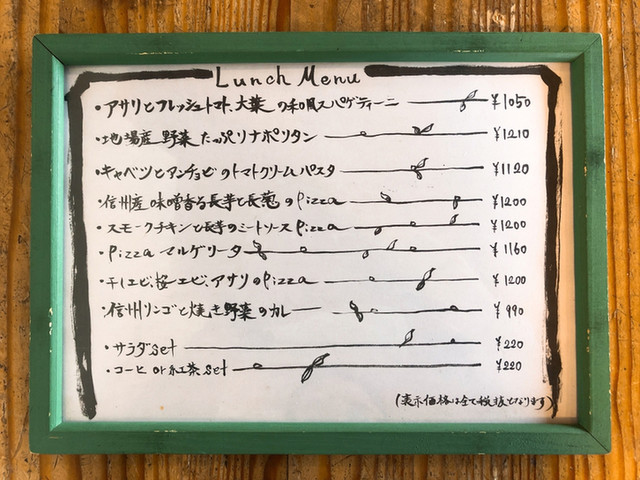 Lunch Menu
・アサリとフレッシュトマト、大葉の和風スパゲティーニ ¥1050
・地場産野菜たっぷりナポリタン ¥1210
・キャベツとアンチョビのトマトクリームパスタ ¥1120
・信州産味噌香る長芋と長葱のpizza ¥1200
・スモークチキンと長芋のミートソースpizza ¥1200
・pizza マルゲリータ ¥1160
・干しエビ、桜エビ、アサリのpizza ¥1200
・信州リンゴと焼き野菜のカレー ¥990
・サラダset ¥220
・コーヒー or 紅茶 set ¥220
(表示価格は全て税抜となります)